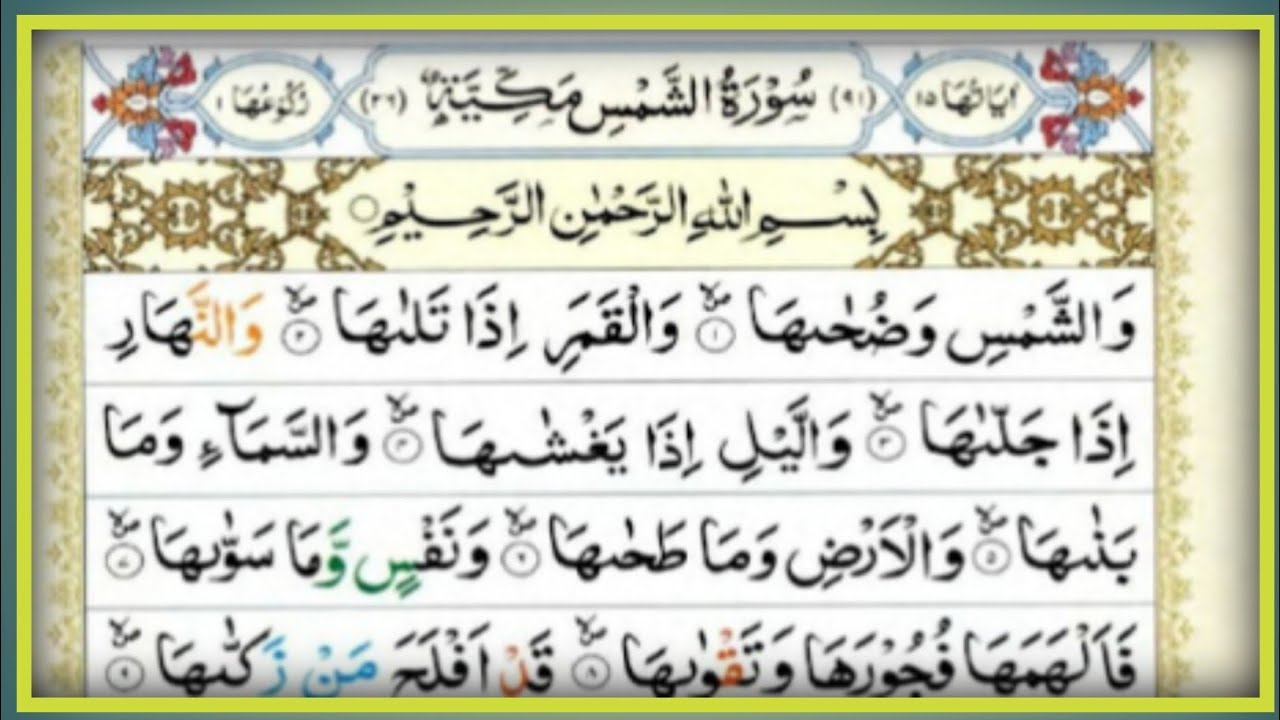 اٰيَاتُهَا ١٥ (٩١) سُوْرَةُ الشَّمْسِ مَكِّيَّةٌ (٢٦) رُكُوْعُهَا ١
بِسْمِ اللّٰهِ الرَّحْمٰنِ الرَّحِيْمِ
وَالشَّمْسِ وَضُحٰىهَا ۙ ١ وَالْقَمَرِ اِذَا تَلٰىهَا ۙ ٢ وَالنَّهَارِ
اِذَا جَلّٰىهَا ۙ ٣ وَالَّيْلِ اِذَا يَغْشٰىهَا ۙ ٤ وَالسَّمَآءِ وَمَا
بَنٰىهَا ۙ ٥ وَالْاَرْضِ وَمَا طَحٰىهَا ۙ ٦ وَنَفْسٍ وَّمَا سَوّٰىهَا ۙ ٧
فَاَلْهَمَهَا فُجُوْرَهَا وَتَقْوٰىهَا ۙ ٨ قَدْ اَفْلَحَ مَنْ زَكّٰىهَا ۙ ٩